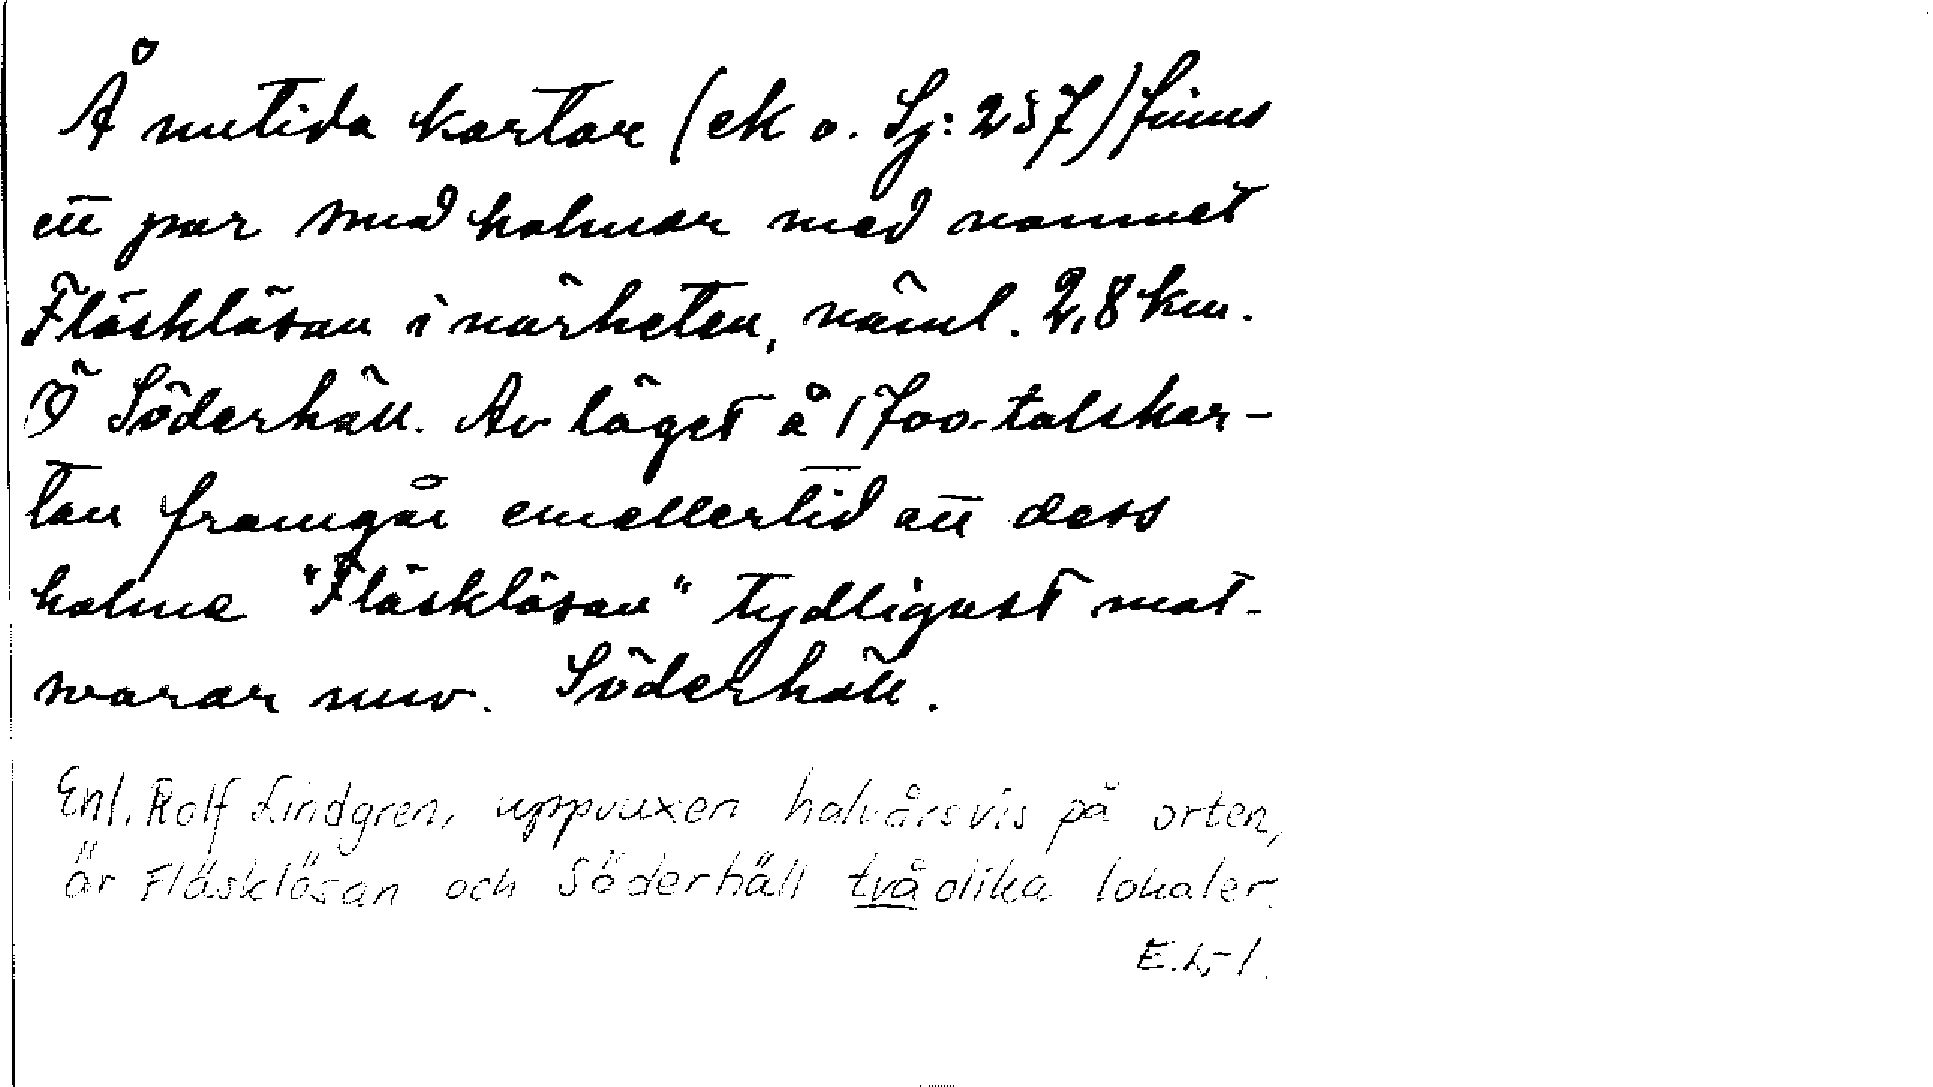 Å nutida kartor (ek o. Sj: 257) finns
ett par små holmar med namnet
Fläsklösan i närheten, näml. 2,8 km.
Ö Söderhäll. Av läget å 1700-talskar-
tan framgår emellertid att dess
holme "Fläsklösan" tydligast mot-
svarar nuv. Söderhäll.
Enl. Rolf Lindgren, uppvuxen halvårsvis på orten,
är Fläsklösan och Söderhäll två olika lokaler.